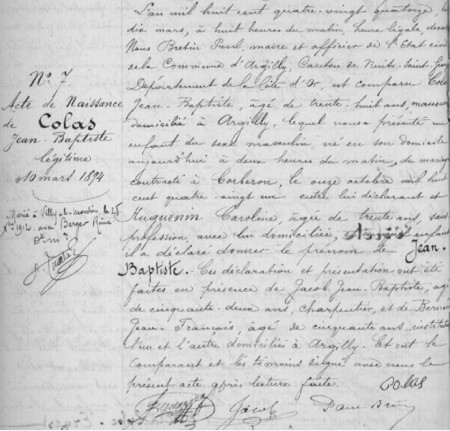 N° 7
Acte de Naissance
de Colas
Jean-Baptiste
légitime
10 mars 1894
Marié à Villy-le-moutier le
1912 avec
L'an mil huit cent quatre-vingt quatorze, le
dix mars, à huit heures du matin, heure légale, devant
Nous Bretin Paul, maire et officier de l'Etat civil
de la Commune d'Argilly, Canton de Nuits-Saint-Georges
Département de la Côte d'Or, est comparu Colas
Jean-Baptiste, âgé de trente-huit ans, manouv
domicilié à Argilly, lequel nous présente un
enfant du sexe masculin, né en son domicile
aujourd'hui à deux heures du matin, du mariage
contracté à Corberon, le onze octobre mil huit
cent quatre-vingt un entre lui déclarant et
Huguenin Caroline, âgée de trente ans, sans
profession, avec lui domiciliée, enfant
il a déclaré donner le prénom de Jean-
Baptiste. Ces déclaration et présentation ont été
faites en présence de Jacob Jean-Baptiste, âgé
de cinquante-deux ans, charpentier, et de
Jean-François, âgé de cinquante ans,
l'un et l'autre domiciliés à Argilly. Et ont le
Comparant et les témoins signé avec nous le
présent acte après lecture faite. Colas
Jacob